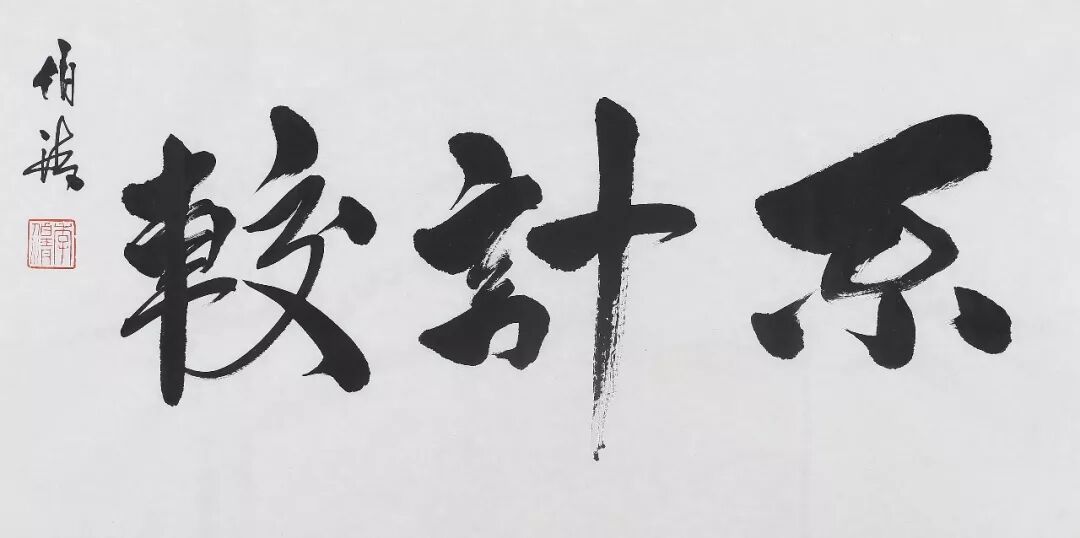 不計較
伯清